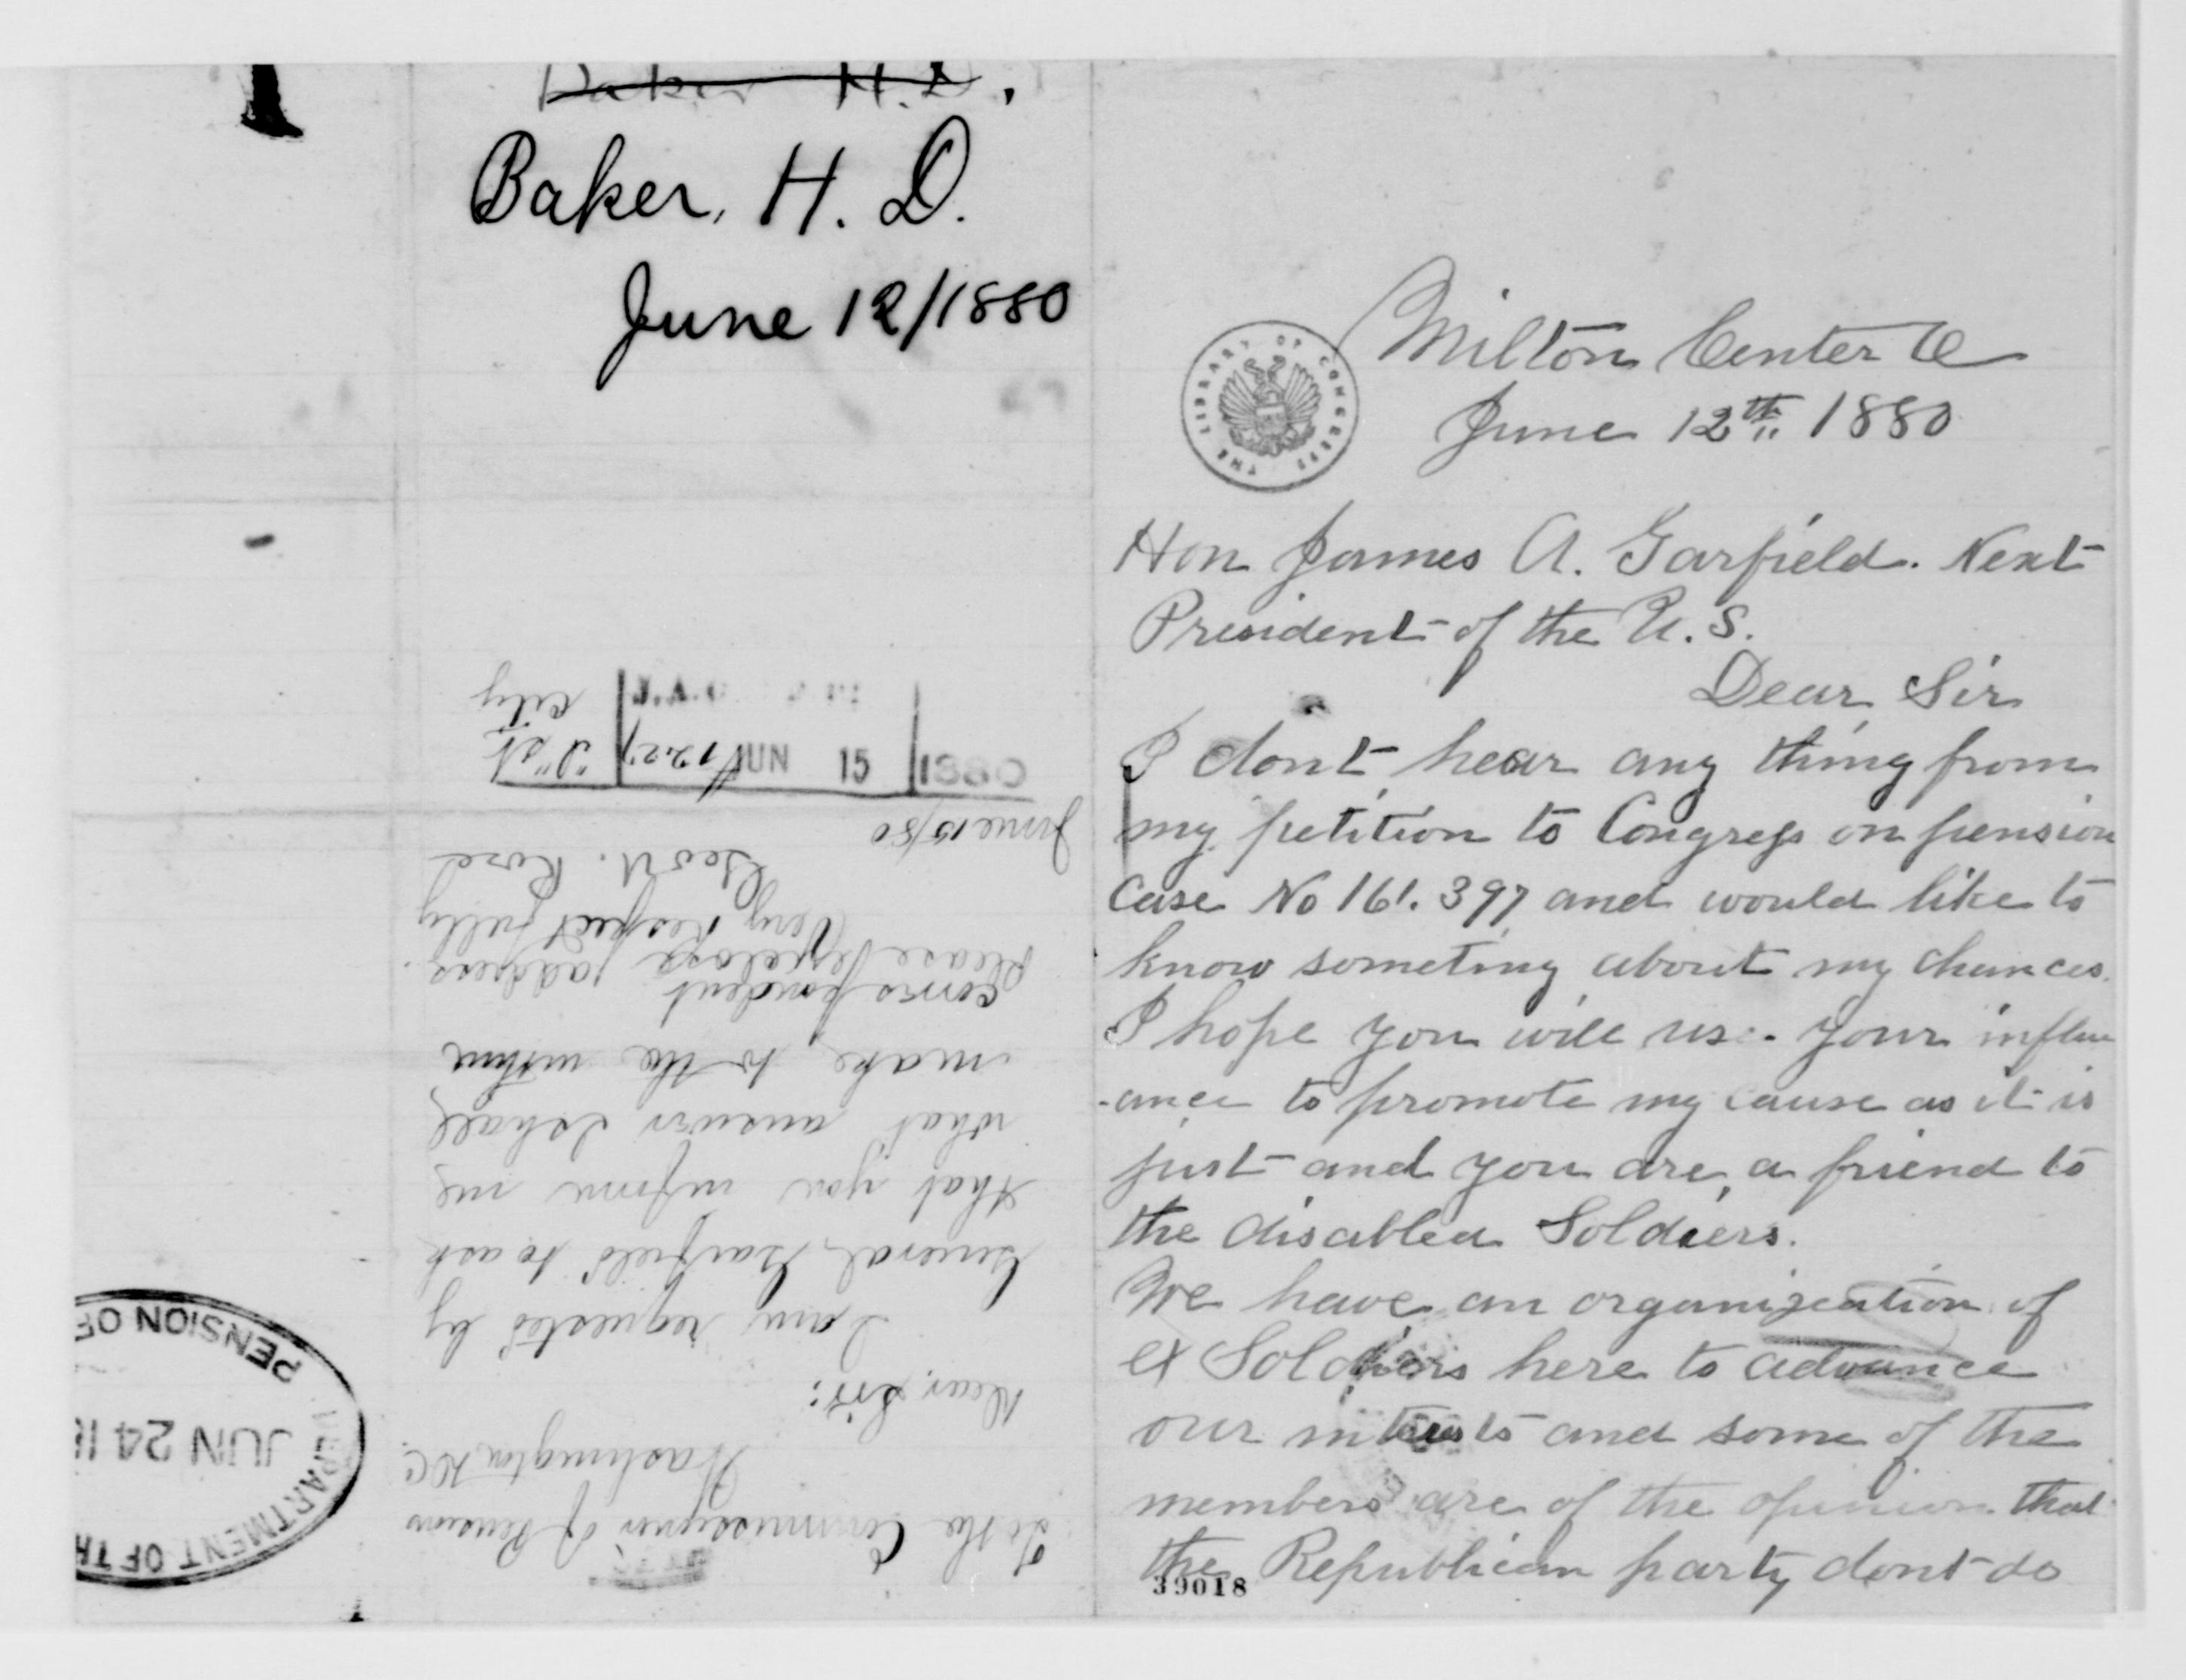 Baker H. D.
Baker, H. D.
June 12/1880
To the Commissioner of Pensions
Washington D.C.
Dear Sir:
I am requested by
General Garfield to ask
that you inform me
what answer I shall
make to the within
correspondent
Please address
Very Respectfully
Geo U. Rose
June 15/80
1227 "I" st
City
J.A.G.
JUN 15 1880
DEPARTMENT OF TH
JUN 24 18
PENSION OF
THE LIBRARY OF CONGRESS
Milton Center O
June 12th 1880
Hon James A. Garfield. Next
President of the U.S.
Dear Sir
I dont hear any thing from
my petition to Congress on pension
Case No 161.397 and would like to
know someting about my chances.
I hope you will use your influ
-ance to promote my cause as it is
just and you are, a friend to
the disabled Soldiers.
We have an organization of
ex Soldiers here to advance
our intrests and some of the
members are of the opinion that
the Republican party dont do
39018